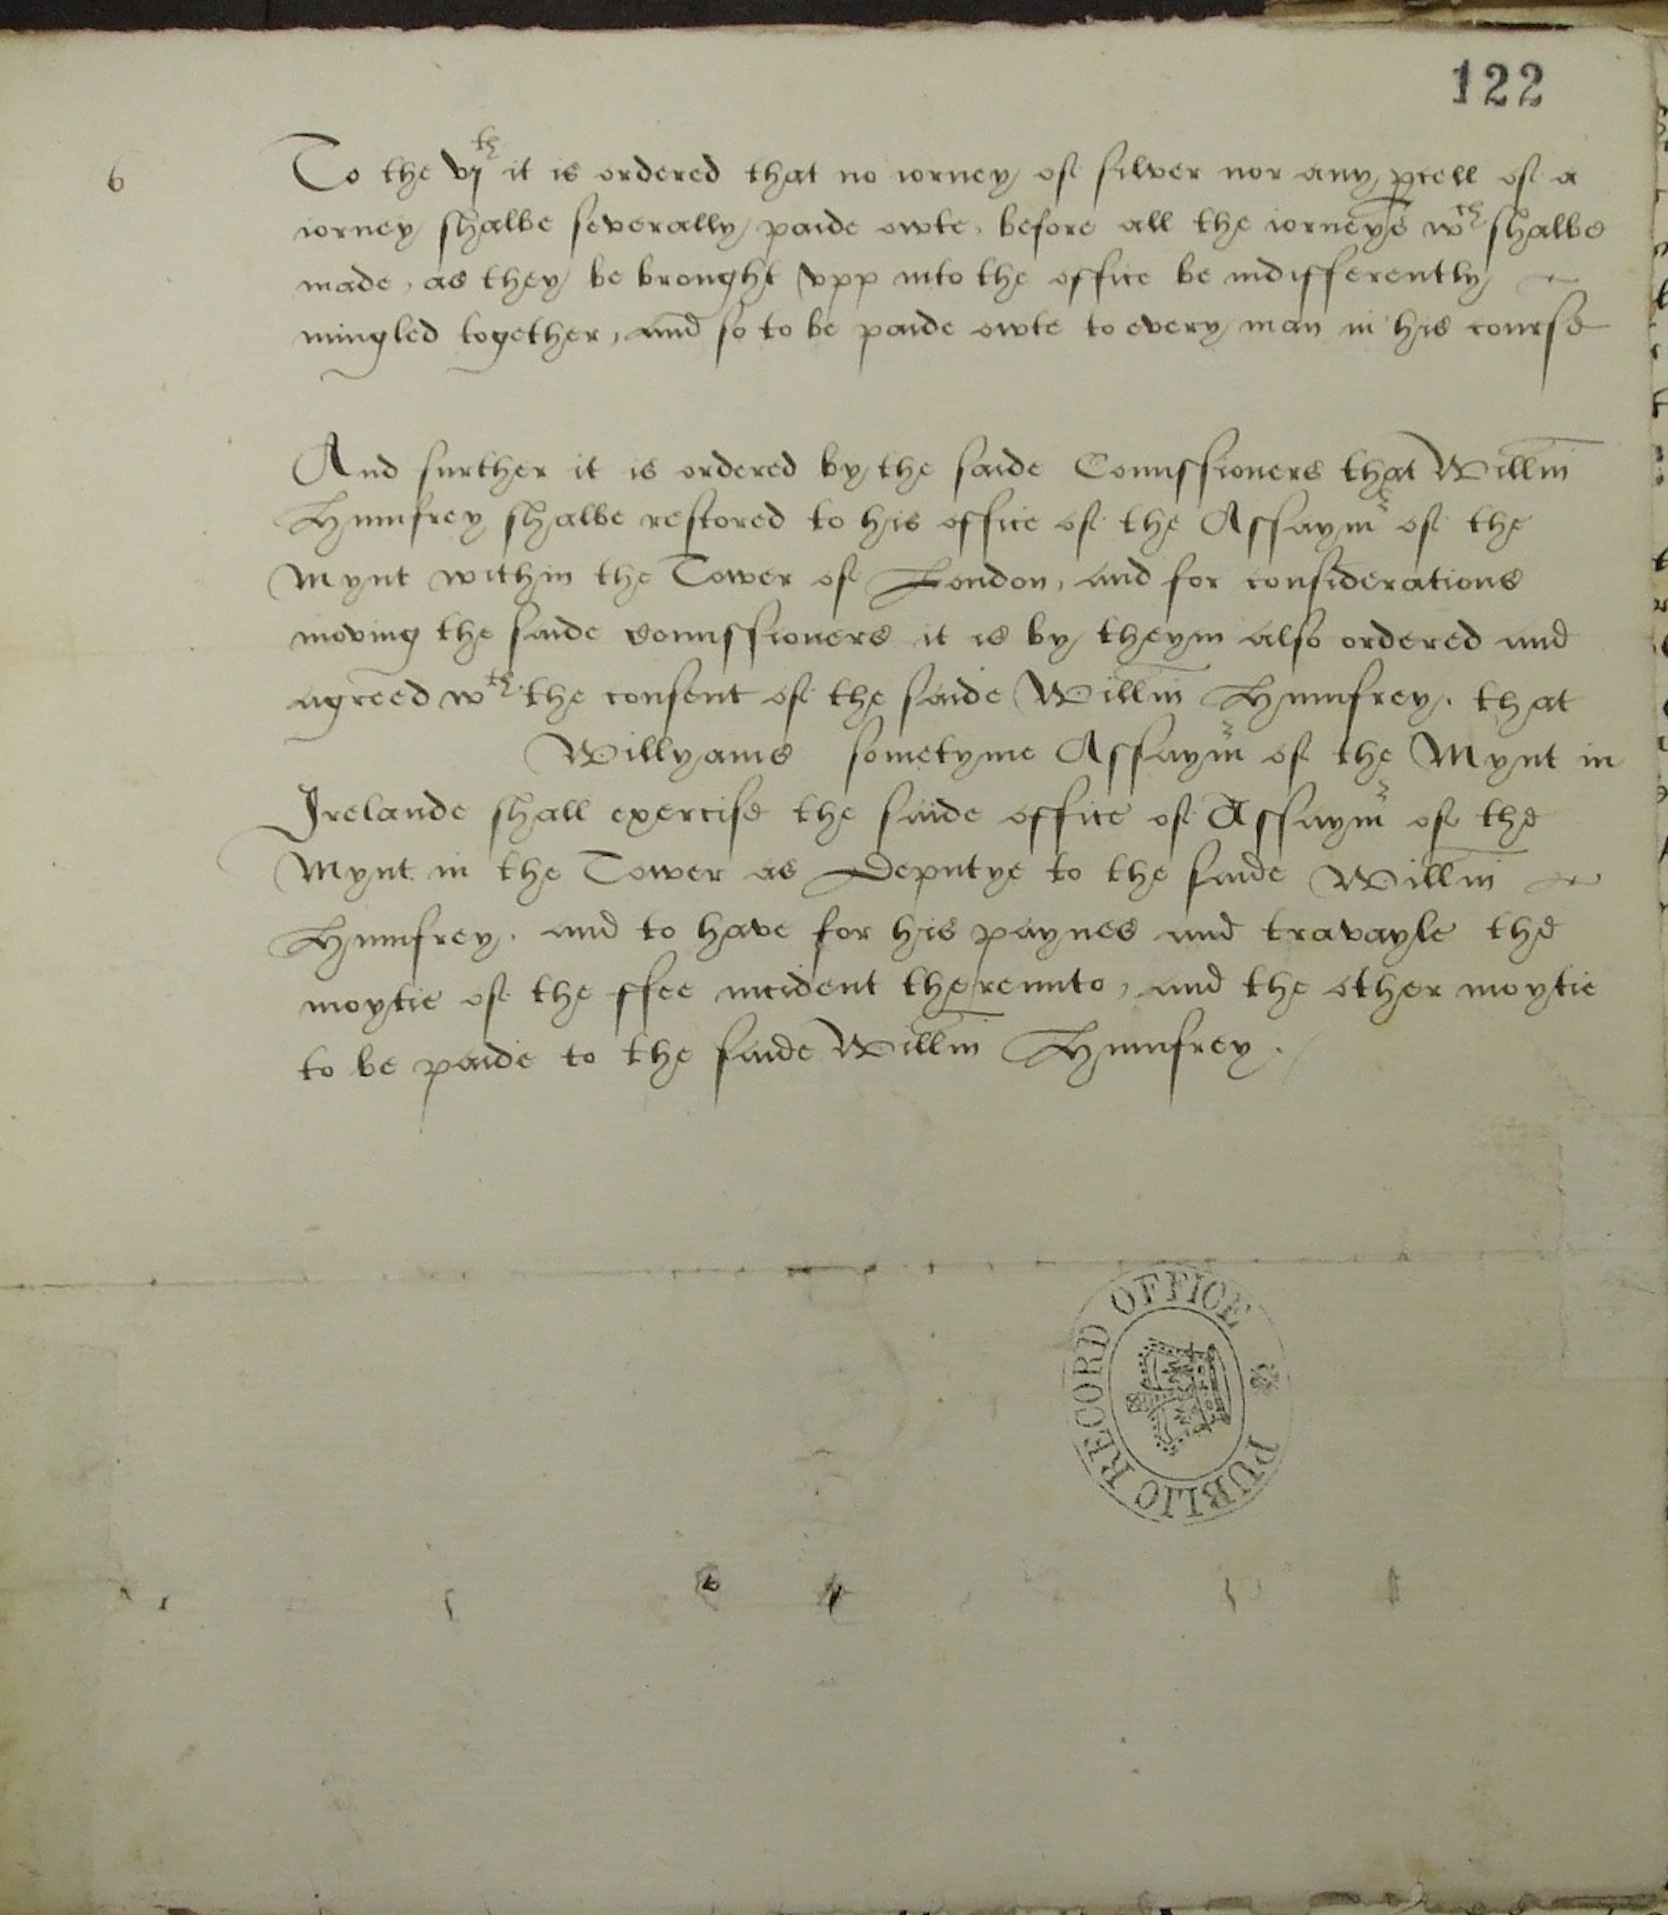 122
6
To the vjth it is ordered that no iorney of silver nor any pcell of a
iorney shalbe severally paide owte, before all the iorneys wch shalbe
made, as they be brought vpp into the office be indifferently
mingled together, and so to be paide owte to every man in his course
And further it is ordered by the saide Comissioners that Willm
Humfrey shalbe restored to his office of the Assaymr of the
Mynt within the Tower of London, and for considerations
moving the saide comissioners it is by theym also ordered and
agreed wth the consent of the saide Willm Humfrey. that
Willyams sometyme Assaymr of the Mynt in
Irelande shall exercise the saide office of Assaymr of the
Mynt in the Tower as Deputye to the saide Willm
Humfrey. and to have for his paynes and travayle the
moytie of the ffee incident therеunto, and the other moytie
to be paide to the saide Willm Humfrey.
PUBLIC RECORD OFFICE